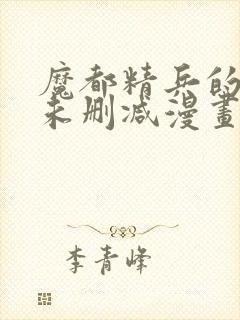 魔都精兵的
未删减漫畫
李青峰